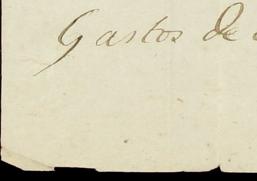 Gastos de